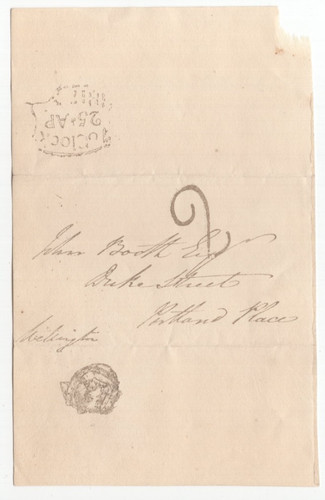 7 o'Clock
25 AP
2
John Booth Esq
Duke Street
Portland Place
Wellington